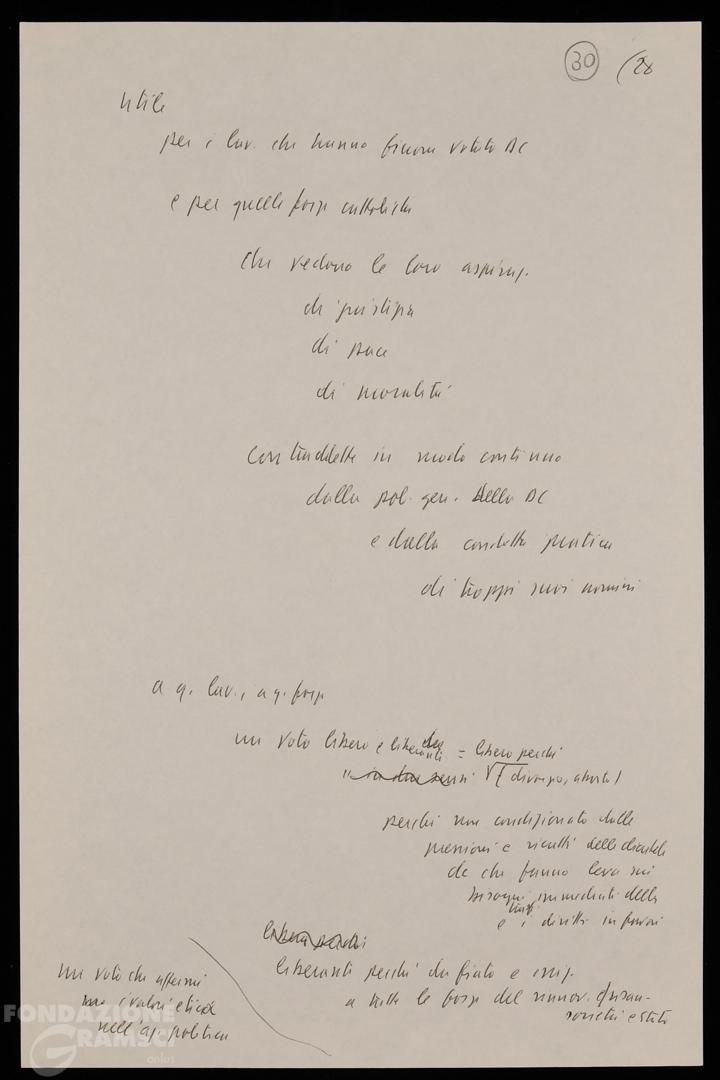 30 (28
utile
per i lav. che hanno finora votato DC
e per quelle forze cattoliche
che vedono le loro aspiraz.
di giustizia
di pace
di moralità
contraddette in modo continuo
dalla pol. gen. della DC
e dalla condotta pratica
di troppi suoi uomini
a q. lav., a q. forze
un voto libero e liberante = libero perché
(divorzio, aborto)
perché non condizionato dalle
pressioni e ricatti delle clientele
dc che fanno leva sui
bisogni immediati della
e i diritti in favori
libera perché
liberanti perché dà fiato e
a tutte le forze del rinnov.
società e stato
un voto che affermi
i valori etici
nell'az. politica
FONDAZIONE
GRAMSCI
onlus